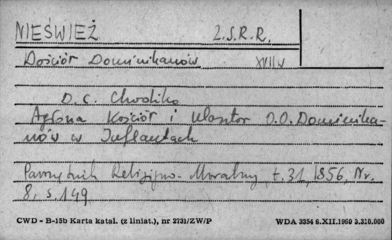 NIEŚWIEŻ Z.S.R.R.
Kościół Dominikanów XVII w
D. C. Chodźko
Kościół i klasztor O.O. Dominika-
nów w Inflantach
Pamiętnik Religijno-Moralny, t. 31, 1856, Nr.
8, s. 149
CWD - B-15b Karta katal. (z liniat.), nr 2731/ZW/P WDA 3354 6.XII.1960 3.210.000